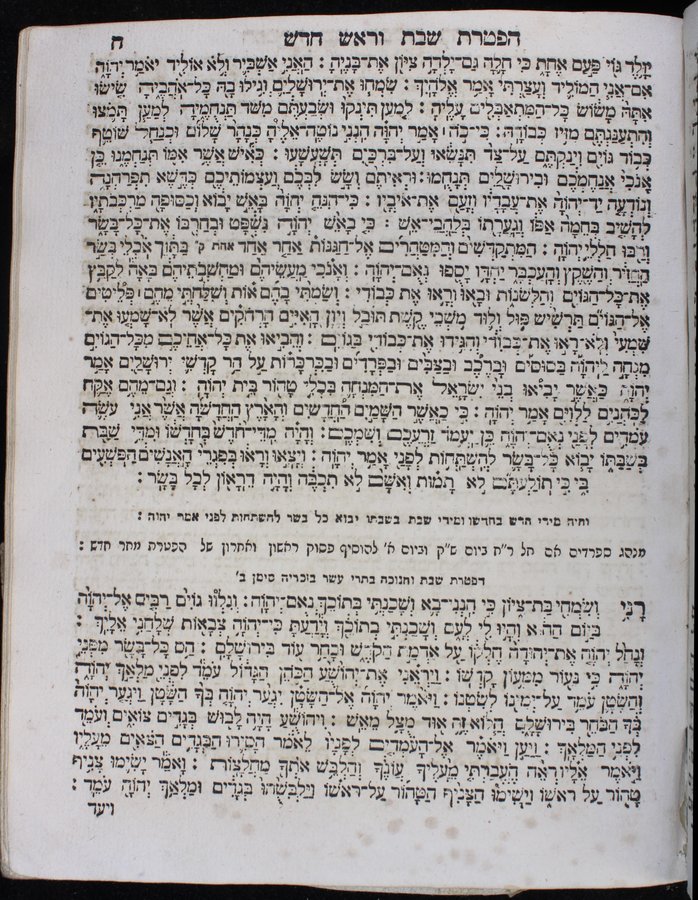 הפטרת שבת וראש חדש ח
יולד גוי פעם אחת כי חלה גם־ילדה ציון את־בניה : האני אשביר ולא אוליד יאמר יהוה
אם־אני המוליד ועצרתי אמר אלהיך : שמחו את־ירושלים וגילו בה כל־אהביה שישו
אתה משוש כל־המתאבלים עליה : למען תינקו ושבעתם משד תנחמיה למען תמצו
והתענגתם מזיז כבודה : כי־כה אמר יהוה הנני נוטה־אליה כנהר שלום וכנחל שוטף
כבוד גוים וינקתם על־צד תנשאו ועל־ברכים תשעשעו : כאיש אשר אמו תנחמנו כן
אנכי אנחמכם ובירושלים תנחמו : וראיתם ושש לבכם ועצמותיכם כדשא תפרחנה
ונודעה יד־יהוה את־עבדיו וזעם את־איביו : כי־הנה יהוה באש יבוא וכסופה מרכבתיו
להשיב בחמה אפו וגערתו בלהבי־אש : כי באש יהוה נשפט ובחרבו את־כל־בשר
ורבו חללי יהוה : המתקדשים והמטהרים אל־הגנות אחר אחד אחת ק׳ בתוך אכלי בשר
החזיר והשקץ והעכבר יחדו יספו נאם־יהוה : ואנכי מעשיהם ומחשבתיהם באה לקבץ
את־כל־הגוים והלשנות ובאו וראו את כבודי : ושמתי בהם אות ושלחתי מהם פליטים
אל־הגוים תרשיש פול ולוד משכי קשת תובל ויון האיים הרחקים אשר לא־שמעו את־
שמעי ולא־ראו את־כבודי והגידו את־כבודי בגוים : והביאו את־כל־אחיכם מכל־הגוים
מנחה ליהוה בסוסים וברכב ובצבים ובפרדים ובכרכרות על הר קדשי ירושלים אמר
יהוה כאשר יביאו בני ישראל את־המנחה בכלי טהור בית יהוה : וגם־מהם אקח
לכהנים ללוים אמר יהוה : כי כאשר השמים החדשים והארץ החדשה אשר אני עשה
עמדים לפני נאם־יהוה כן יעמד זרעכם ושמכם : והיה מדי־חדש בחדשו ומדי שבת
בשבתו יבוא כל־בשר להשתחות לפני אמר יהוה : ויצאו וראו בפגרי האנשים הפשעים
בי כי תולעתם לא תמות ואשם לא תכבה והיה דראון לכל בשר :
והיה מידי חדש בחדשו ומידי שבת בשבתו יבוא כל בשר להשתחות לפני אמר יהוה :
מנהג ספרדים אם חל ר״ח ביום ש״ק וביום א׳ להוסיף פסוק ראשון ואחרון של הפטרת מחר חדש :
הפטרת שבת וחנוכה בתרי עשר בזכריה סימן ב׳
רני ושמחי בת־ציון כי הנני־בא ושכנתי בתוכך נאם־יהוה : ונלוו גוים רבים אל־יהוה
ביום ההוא והיו לי לעם ושכנתי בתוכך וידעת כי־יהוה צבאות שלחני אליך :
ונחל יהוה את־יהודה חלקו על אדמת הקדש ובחר עוד בירושלם : הס כל־בשר מפני
יהוה כי נעור ממעון קדשו : ויראני את־יהושע הכהן הגדול עמד לפני מלאך יהוה
והשטן עמד על־ימינו לשטנו : ויאמר יהוה אל־השטן יגער יהוה בך השטן ויגער יהוה
בך הבחר בירושלם הלוא זה אוד מצל מאש : ויהושע היה לבוש בגדים צואים ועמד
לפני המלאך : ויען ויאמר אל־העמדים לפניו לאמר הסירו הבגדים הצאים מעליו
ויאמר אליו ראה העברתי מעליך עונך והלבש אתך מחלצות : ואמר ישימו צניף
טהור על ראשו וישימו הצניף הטהור על־ראשו וילבשהו בגדים ומלאך יהוה עמד :
ויעד